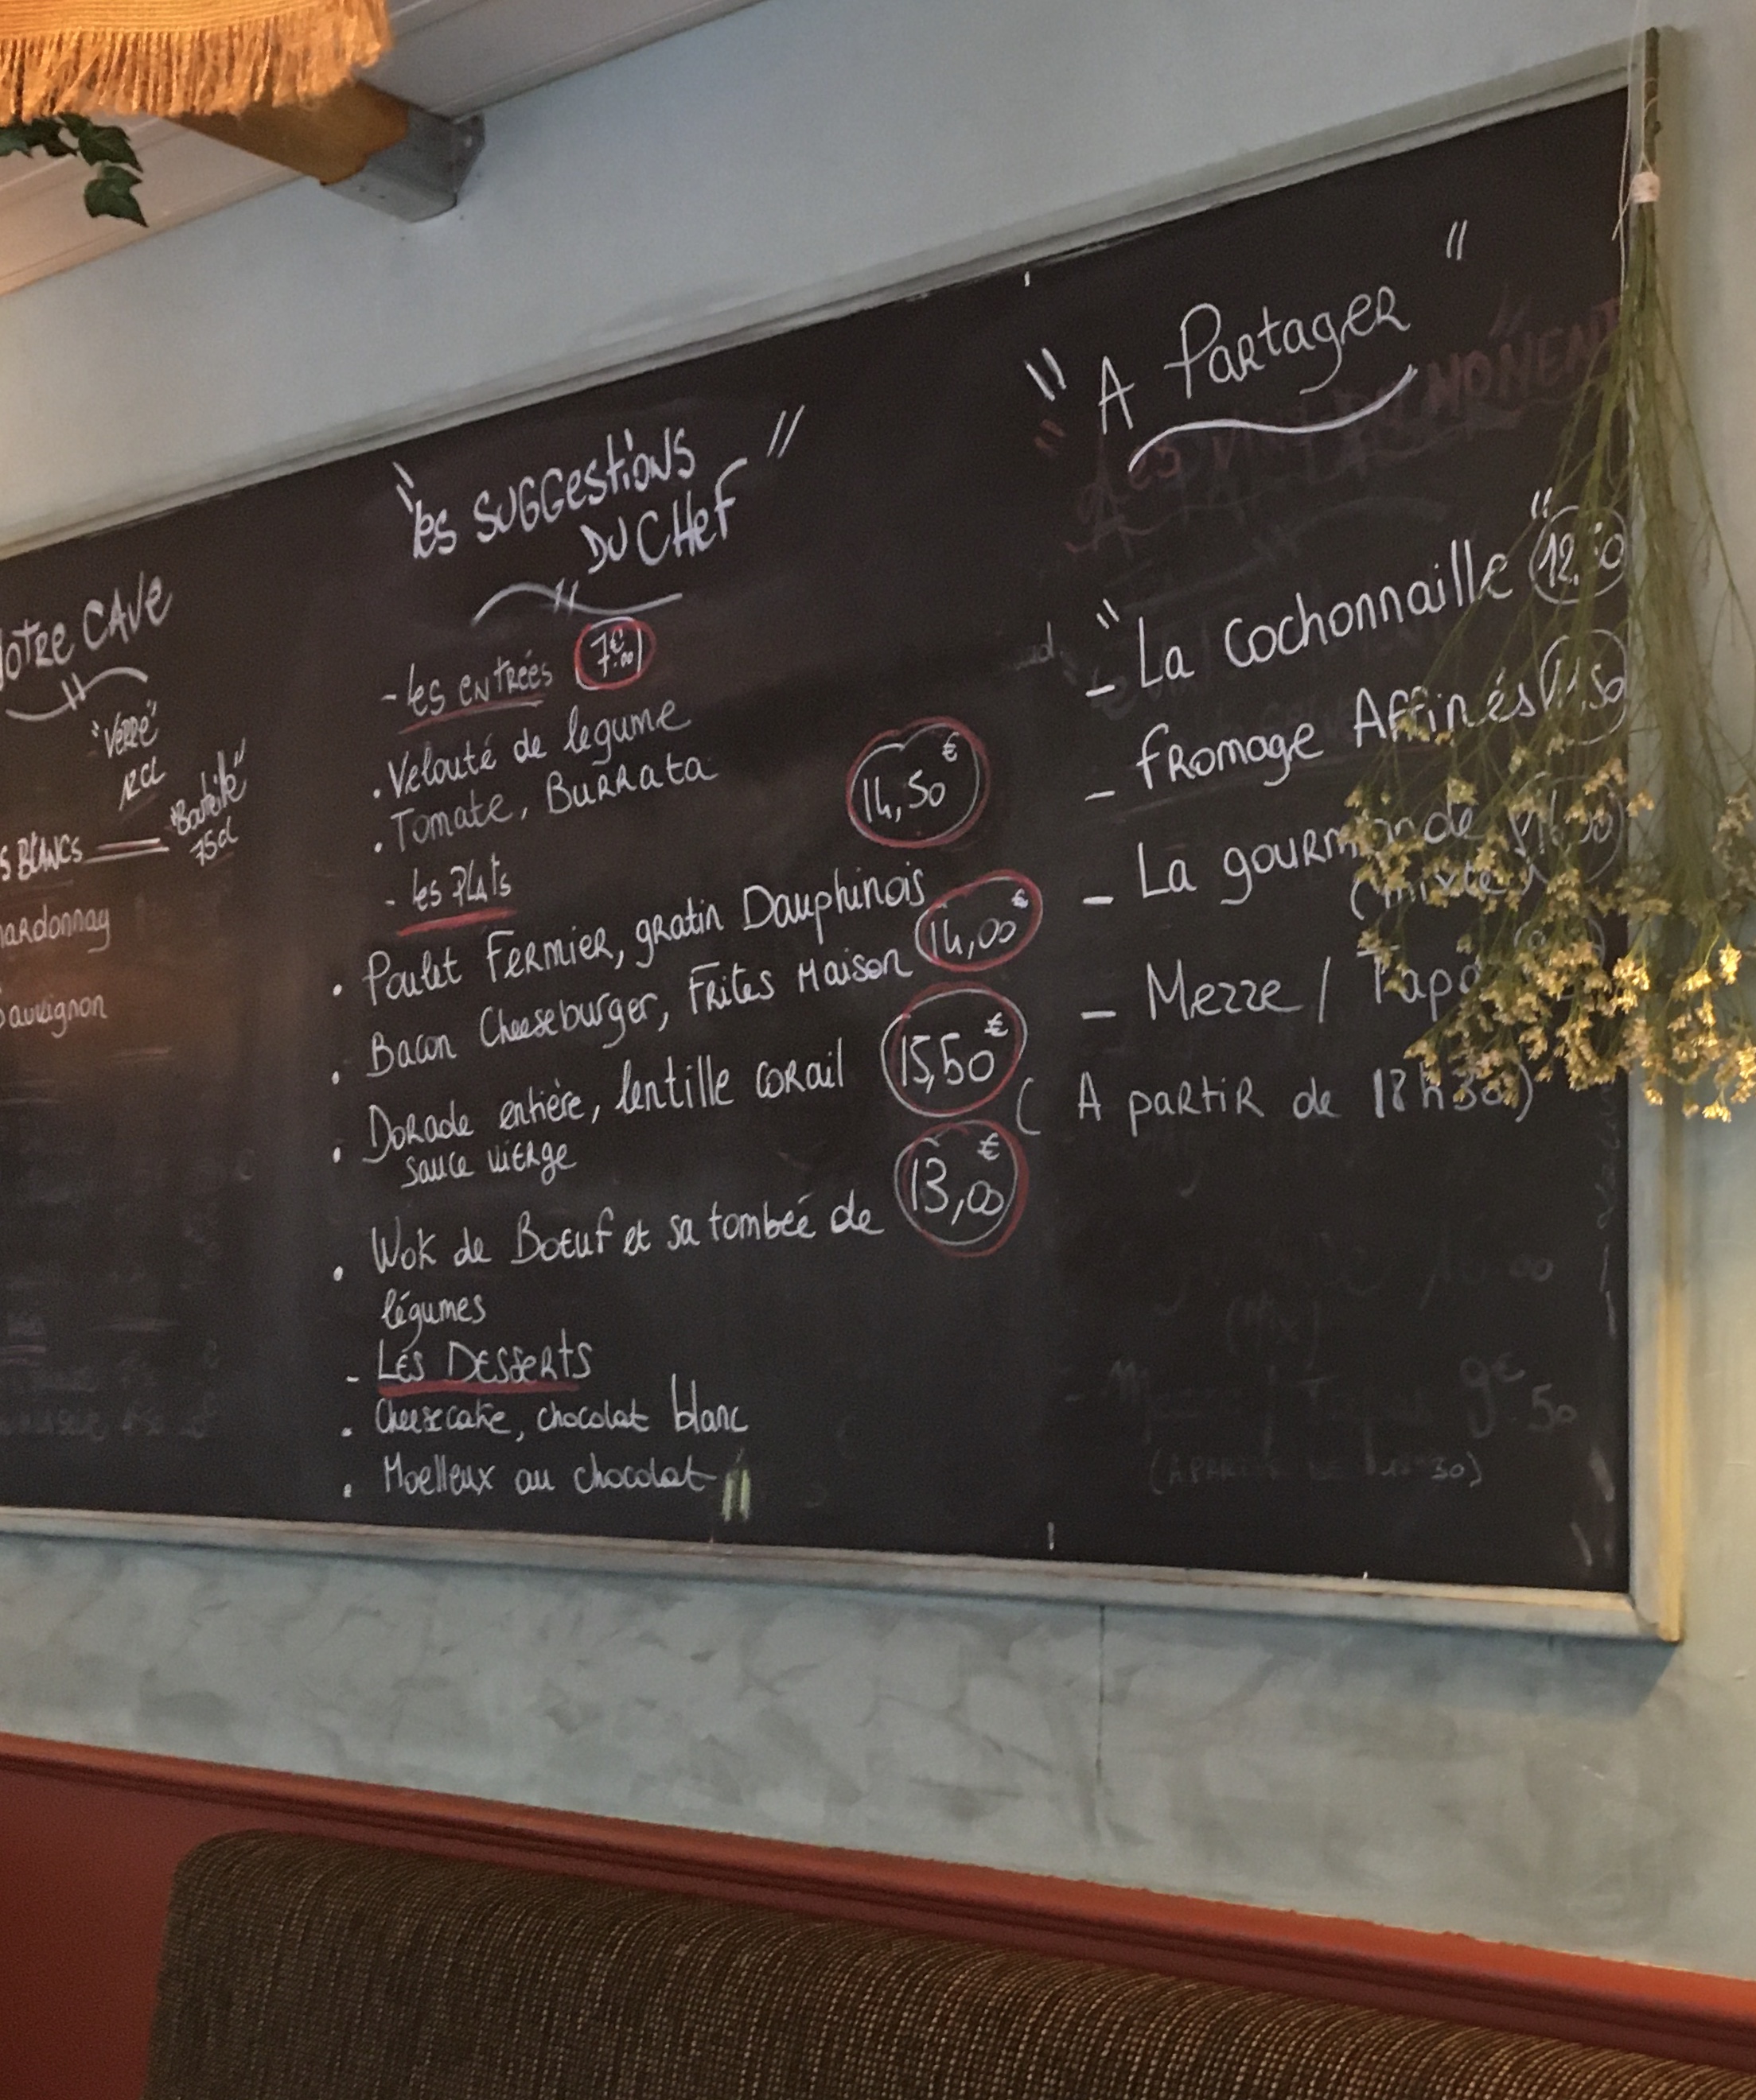 CAVE
"Verre"
12cl
"Bouteille"
75cl
BLANCS
"Les SUGGestiONS
DU CHeF"
- Les ENTRÉES 7€.00
. Velouté de legume
. Tomate, BURRata
- Les PLAts
. Poulet FERMiER, gRatin Dauphinois 14,50€
. Bacon Cheeseburger, FRites Maison 14,00€
. DoRade entière, lentille coRail 15,50€
sauce viERge
. Wok de Boeuf et sa tombée de 13,00€
légumes
- LES DESSeRtS
. Cheesecake, chocolat blanc
. Moelleux au chocolat
"A PaRtageR"
- "La Cochonnaille"
- fRomage Affinés
- La gouRmande
(mixte)
- Mezze /
(A paRtiR de 18h30)
9€.50